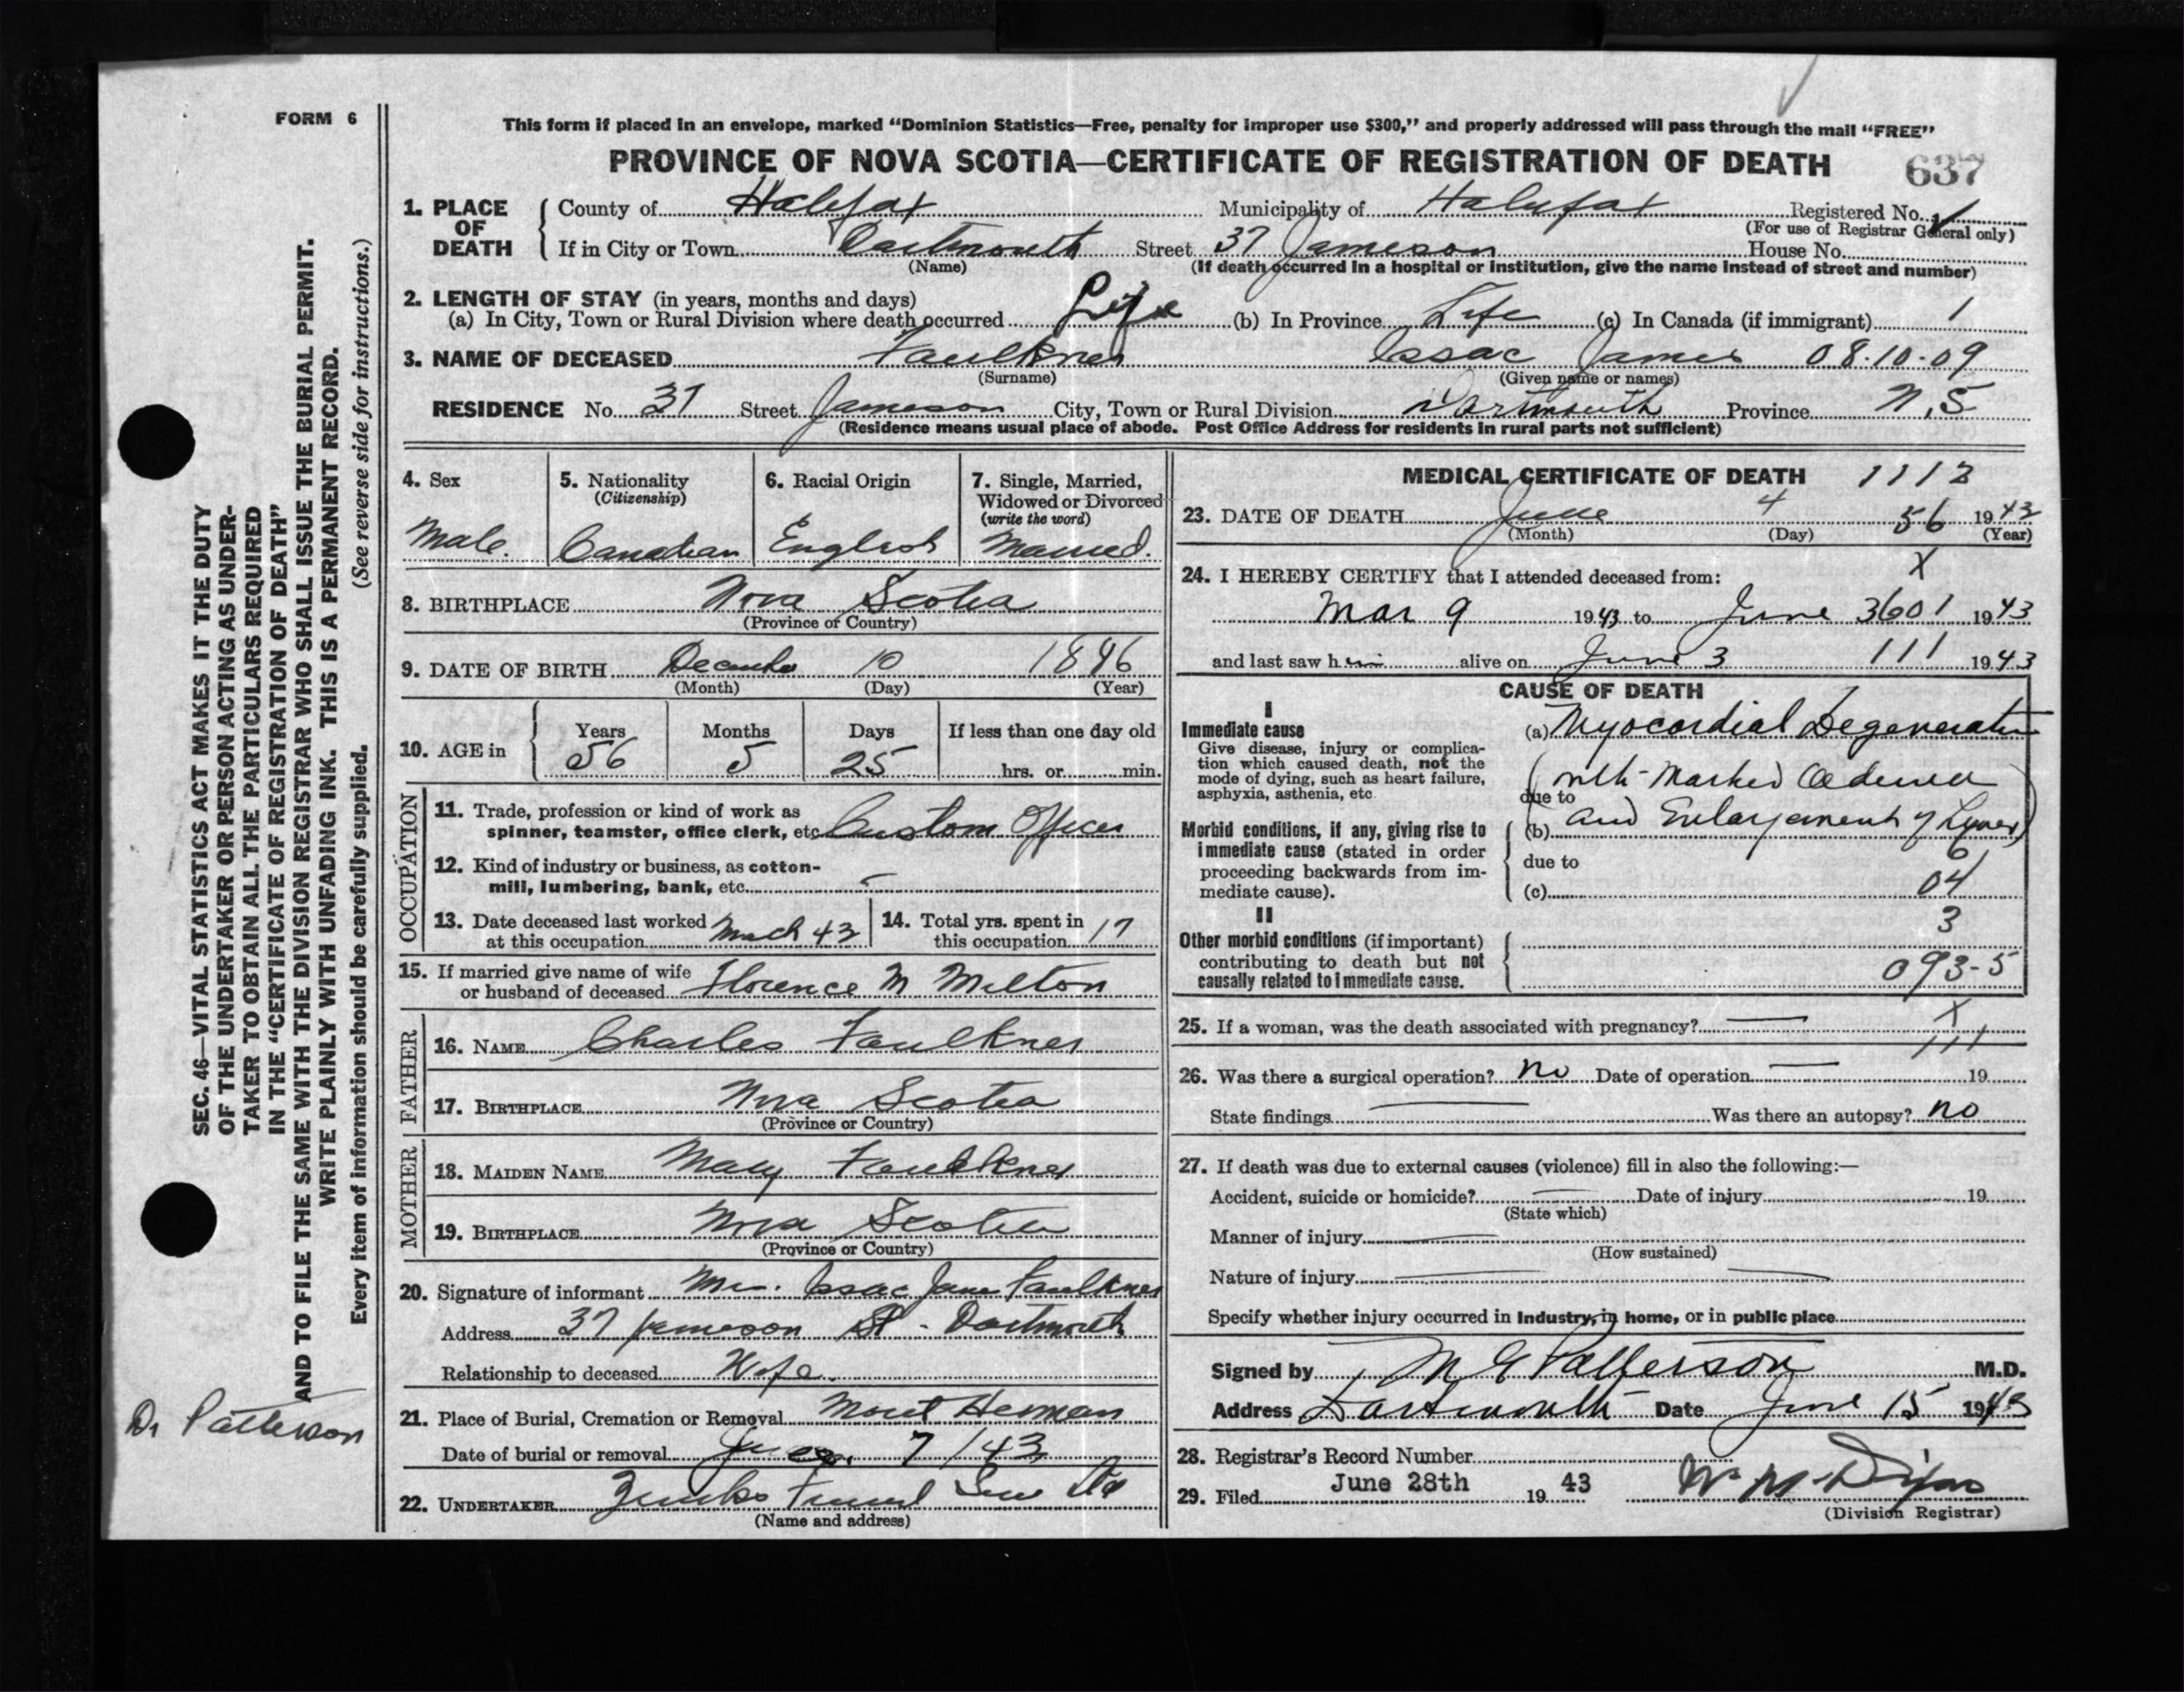 FORM 6
This form if placed in an envelope, marked “Dominion Statistics—Free, penalty for improper use $300,” and properly addressed will pass through the mail “FREE”
PROVINCE OF NOVA SCOTIA—CERTIFICATE OF REGISTRATION OF DEATH 637
1. PLACE OF DEATH
County of Halifax Municipality of Halifax Registered No.
(For use of Registrar General only)
If in City or Town Dartmouth Street 37 Jameson House No.
(Name) (If death occurred in a hospital or institution, give the name instead of street and number)
2. LENGTH OF STAY (in years, months and days)
(a) In City, Town or Rural Division where death occurred Life (b) In Province Life (c) In Canada (if immigrant) 1
3. NAME OF DECEASED Faulkner Issac James 08.10.09
(Surname) (Given name or names)
RESIDENCE No. 37 Street Jameson City, Town or Rural Division Dartmouth Province N.S
(Residence means usual place of abode. Post Office Address for residents in rural parts not sufficient)
4. Sex
Male.
5. Nationality
(Citizenship)
Canadian
6. Racial Origin
English
7. Single, Married,
Widowed or Divorced
(write the word)
Married.
8. BIRTHPLACE Nova Scotia
(Province or Country)
9. DATE OF BIRTH December 10 1896
(Month) (Day) (Year)
10. AGE in
Years Months Days If less than one day old
56 5 25 hrs. or min.
OCCUPATION
11. Trade, profession or kind of work as
spinner, teamster, office clerk, etc Custom Officer
12. Kind of industry or business, as cotton-
mill, lumbering, bank, etc.
13. Date deceased last worked
at this occupation March 43
14. Total yrs. spent in
this occupation 17
15. If married give name of wife
or husband of deceased Florence M Melton
FATHER
16. NAME Charles Faulkner
17. BIRTHPLACE Nova Scotia
(Province or Country)
MOTHER
18. MAIDEN NAME Mary Faulkner
19. BIRTHPLACE Nova Scotia
(Province or Country)
20. Signature of informant Mrs. Issac James Faulkner
Address 37 Jameson St - Dartmouth
Relationship to deceased Wife.
21. Place of Burial, Cremation or Removal Mount Herman
Date of burial or removal June 7/43
22. UNDERTAKER Zinks Funeral Ser Ltd
(Name and address)
MEDICAL CERTIFICATE OF DEATH 1112
23. DATE OF DEATH June 4 56 1943
(Month) (Day) (Year)
24. I HEREBY CERTIFY that I attended deceased from: X
Mar 9 1943 to June 3 601 1943
and last saw him alive on June 3 111 1943
CAUSE OF DEATH
I
Immediate cause
Give disease, injury or complica-
tion which caused death, not the
mode of dying, such as heart failure,
asphyxia, asthenia, etc
(a) Myocardial Degeneration
(with Marked Oedema
due to
(b) and Enlargement of Liver)
Morbid conditions, if any, giving rise to
immediate cause (stated in order
proceeding backwards from im-
mediate cause).
due to 6
(c) 04
II 3
Other morbid conditions (if important)
contributing to death but not
causally related to immediate cause. 093-5
25. If a woman, was the death associated with pregnancy? — X
111
26. Was there a surgical operation? no Date of operation — 19
State findings — Was there an autopsy? no
27. If death was due to external causes (violence) fill in also the following:—
Accident, suicide or homicide? — Date of injury 19
(State which)
Manner of injury —
(How sustained)
Nature of injury — —
Specify whether injury occurred in Industry, in home, or in public place
Signed by M G Patterson M.D.
Address Dartmouth Date June 15 1943
28. Registrar's Record Number
29. Filed June 28th 19 43 W. M. Dixon
(Division Registrar)
SEC. 46—VITAL STATISTICS ACT MAKES IT THE DUTY
OF THE UNDERTAKER OR PERSON ACTING AS UNDER-
TAKER TO OBTAIN ALL THE PARTICULARS REQUIRED
IN THE “CERTIFICATE OF REGISTRATION OF DEATH”
AND TO FILE THE SAME WITH THE DIVISION REGISTRAR WHO SHALL ISSUE THE BURIAL PERMIT.
WRITE PLAINLY WITH UNFADING INK. THIS IS A PERMANENT RECORD.
Every item of information should be carefully supplied. (See reverse side for instructions.)
Dr Patterson